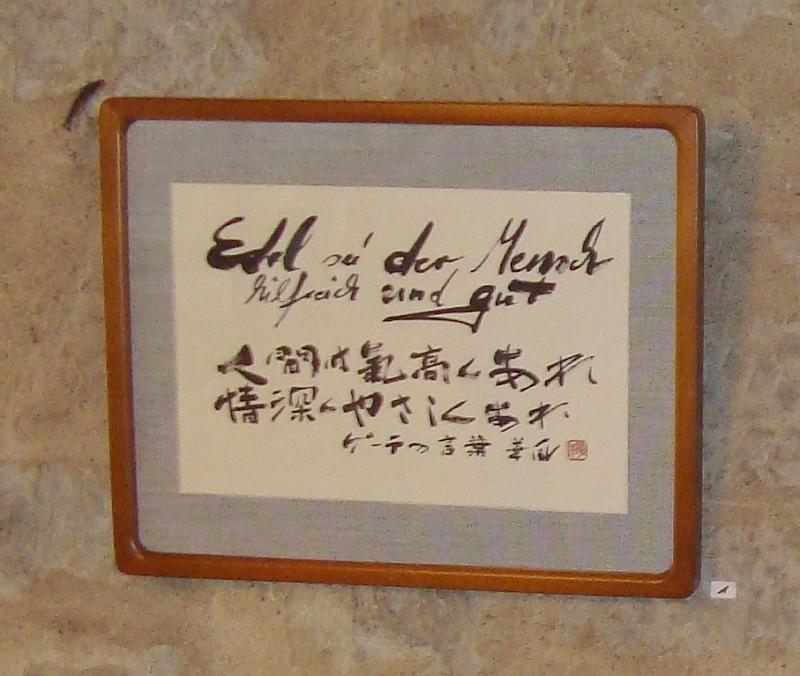 Edel sei der Mensch
hilfreich und gut
人間は氣高くあれ
情深くやさしくあれ
ゲーテの言葉